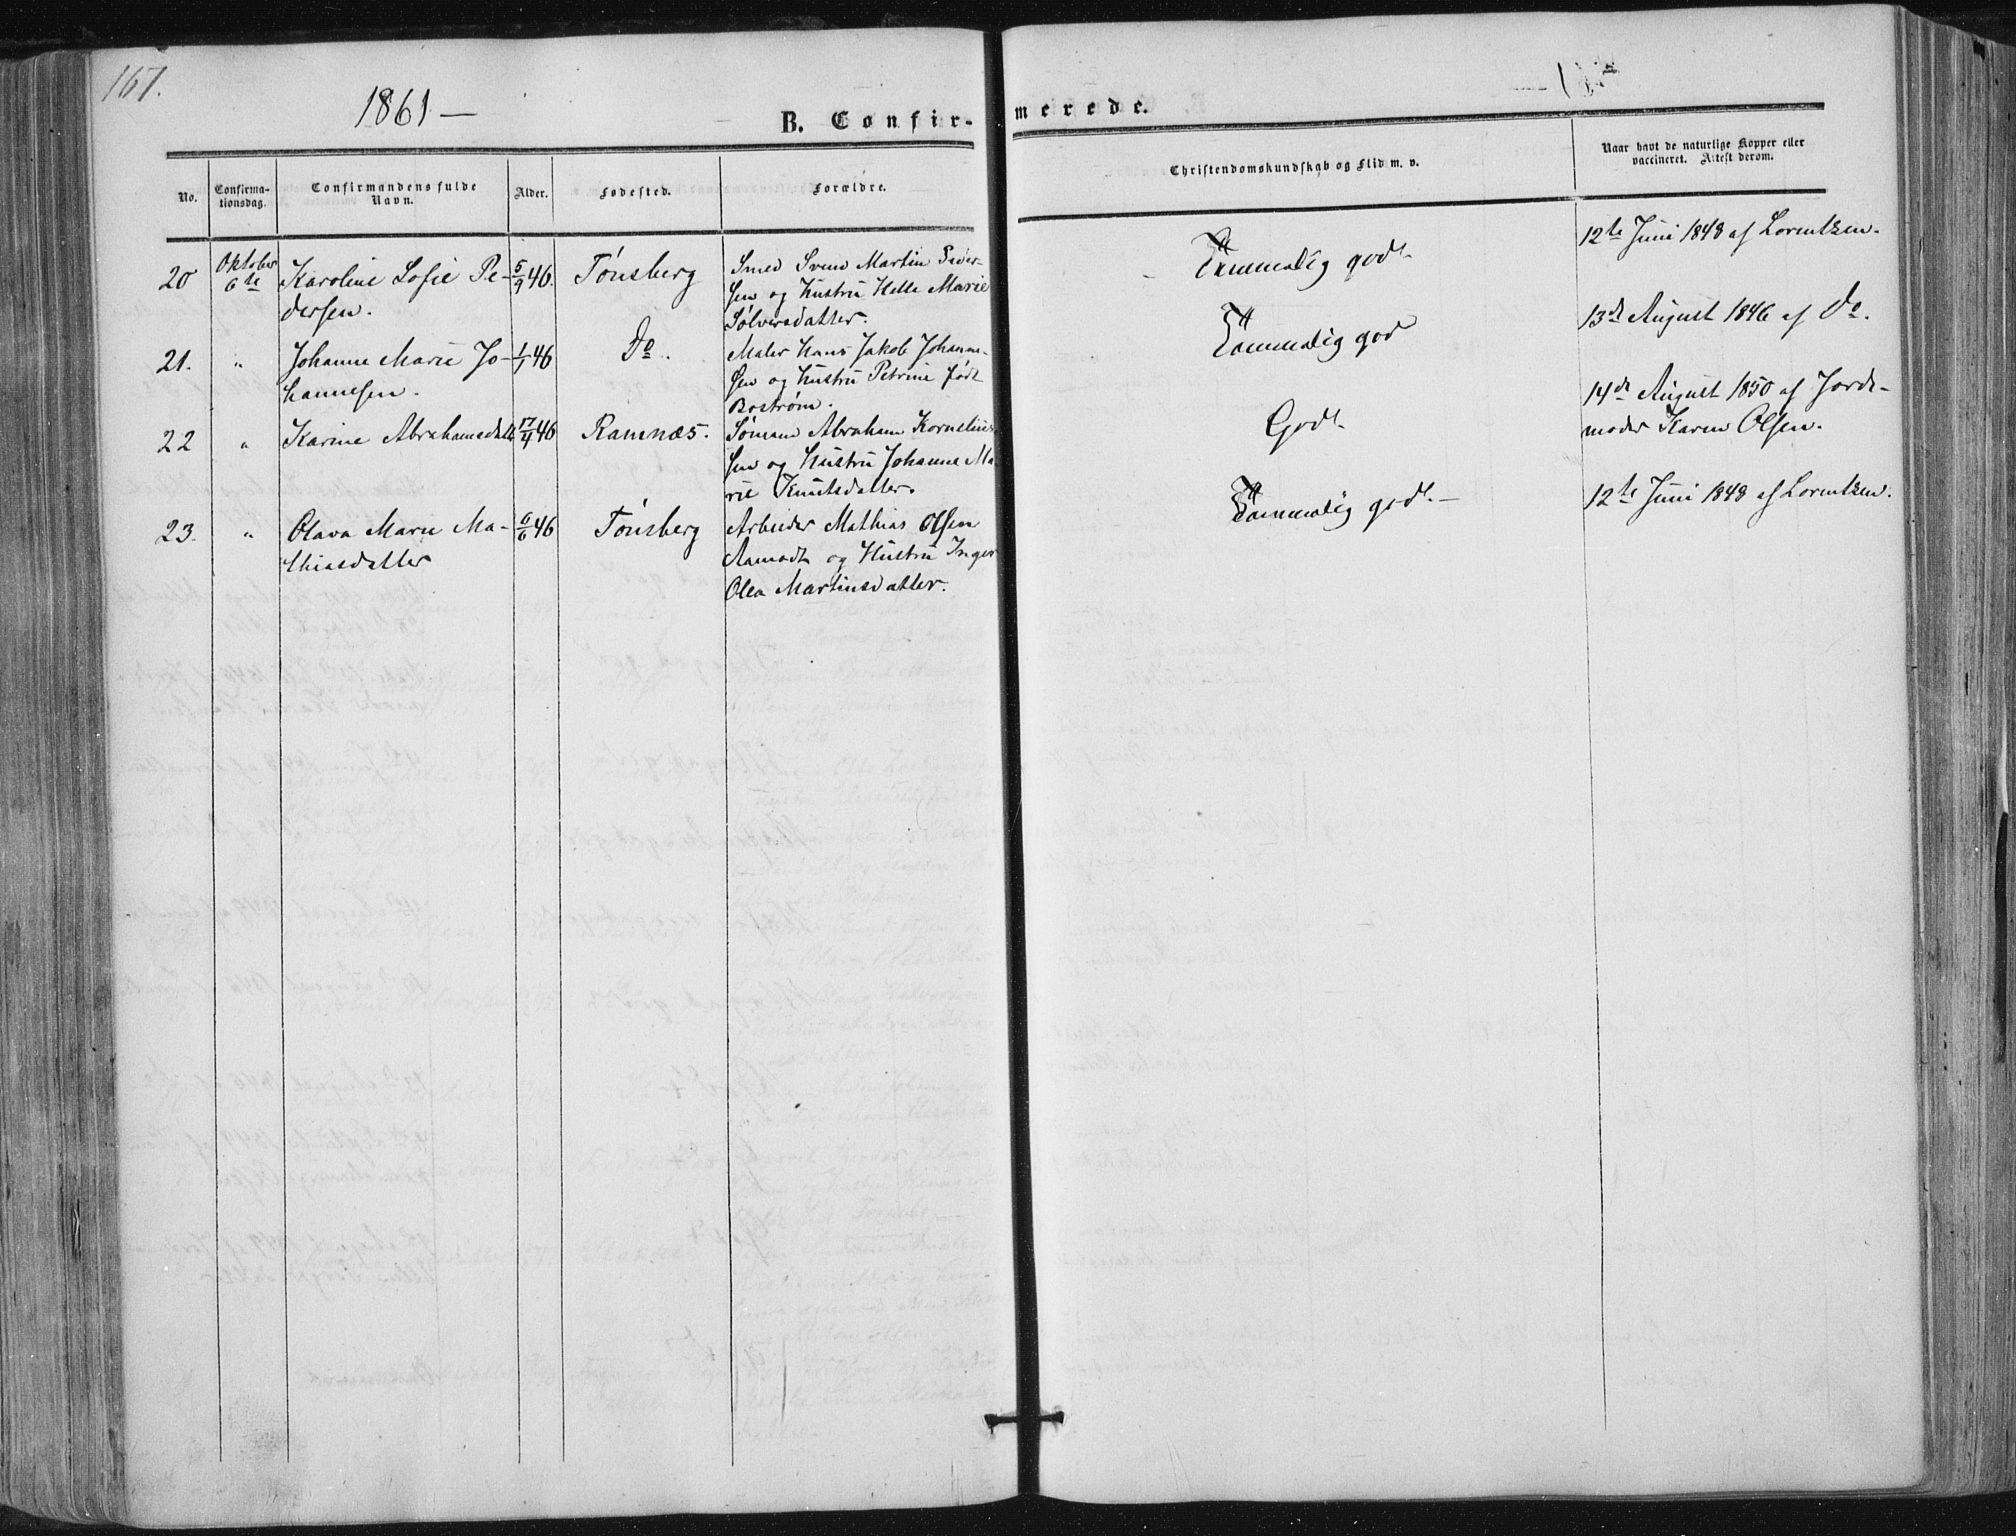 167.
1861 —
B. Confir-
merede.
No.
Confirma-
tionsdag.
Confirmandens fulde
Navn.
Alder.
Fødested.
Forældre.
Christendomskundskab og Flid m. v.
Naar havt de naturlige Kopper eller
vaccineret. Attest derom.
20 Oktober 6te Karoline Sofie Pe- 5/9 46. Tønsberg Smed Svend Martin Peder-
dersen. sen og Hustru Helle Marie
Sølversdatter.
Temmelig godt
12te Juni 1848 af Lorentzen.
21. " Johanne Marie Jo- 1/1 46 Do. Maler Hans Jakob Johanne-
hannesen. sen og Hustru Petrine født
Bostrøm.
Temmelig god
13de August 1846 af Do.
22 " Karine Abrahamsdatt 17/4 46 Ramnæs. Sømand Abraham Kornelius
sen og Hustru Johanne Ma-
rie Knutsdatter.
Godt
14de August 1850 af Jorde-
moder Karen Olsen.
23. " Olava Marie Ma- 6/6 46 Tønsberg Arbeider Mathias Olsen
thiasdatter Aamodt og Hustru Inger
Olea Martinsdatter.
Temmelig godt. —
12te Juni 1848 af Lorentzen.